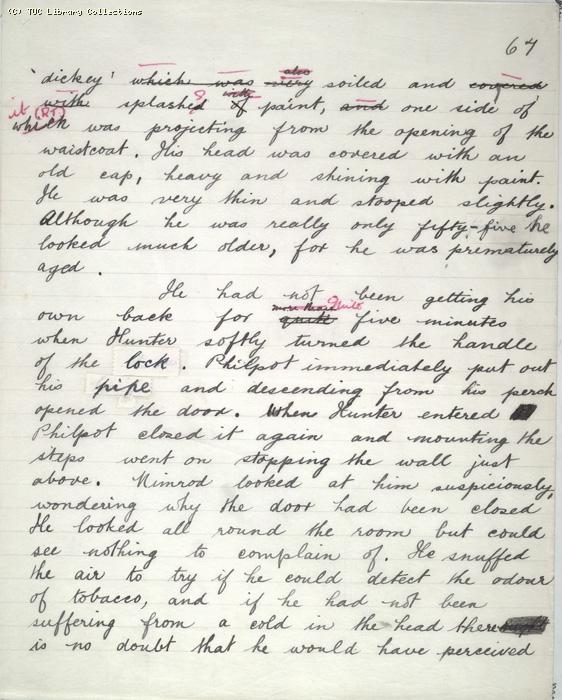 (C) TUC Library Collections
67
'dickey' which was very also soiled and covered
with splashed & with of paint, and one side of
it (RT) which was projecting from the opening of the
waistcoat. His head was covered with an
old cap, heavy and shining with paint.
He was very thin and stooped slightly.
Although he was really only fifty-five he
looked much older, for he was prematurely
aged.
He had not been getting his
own back for quite more than quite five minutes
when Hunter softly turned the handle
of the lock. Philpot immediately put out
his pipe and descending from his perch
opened the door. When Hunter entered
Philpot closed it again and mounting the
steps went on stopping the wall just
above. Nimrod looked at him suspiciously,
wondering why the door had been closed
He looked all round the room but could
see nothing to complain of. He snuffed
the air to try if he could detect the odour
of tobacco, and if he had not been
suffering from a cold in the head there
is no doubt that he would have perceived